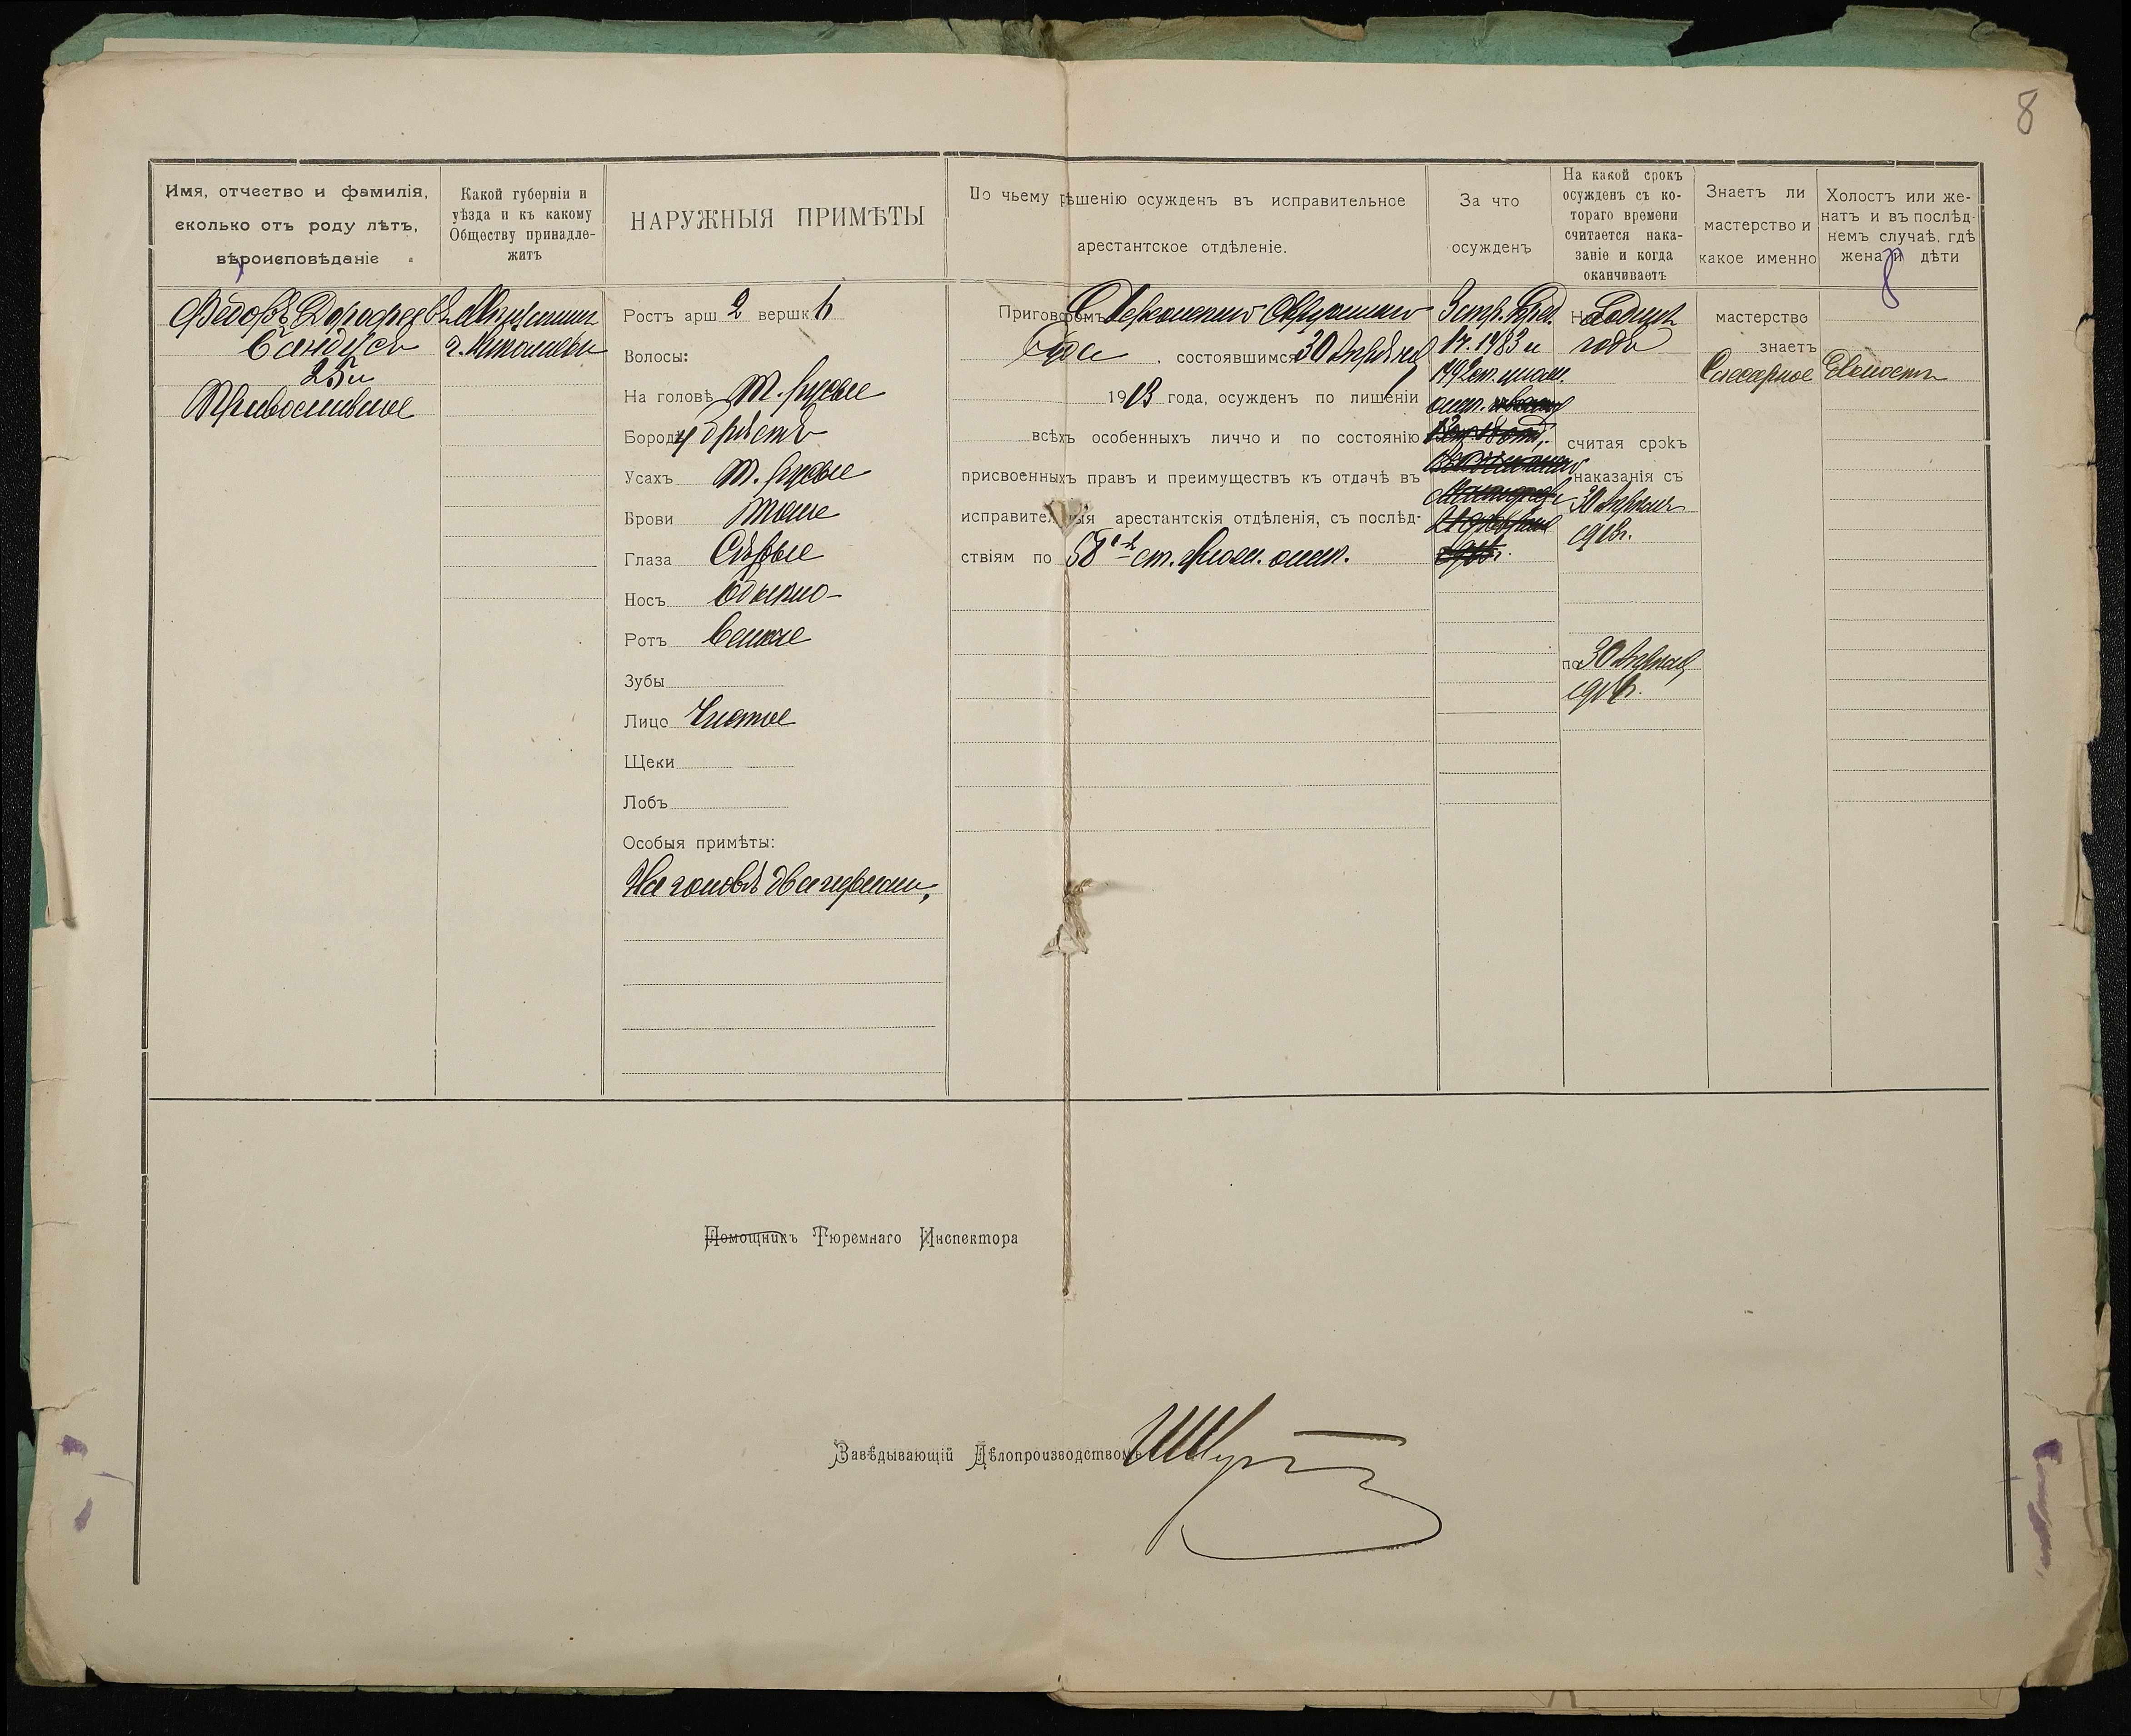 8
Имя, отчество и фамилія,
сколько отъ роду лѣтъ,
вѣроисповѣданіе
Какой губерніи и
уѣзда и къ какому
Обществу принадле-
житъ
НАРУЖНЫЯ ПРИМѢТЫ
По чьему рѣшенію осужденъ въ исправительное
арестантское отдѣленіе.
За что
осужденъ
На какой срокъ
осужденъ съ ко-
тораго времени
считается нака-
заніе и когда
оканчиваетъ
Знаетъ ли
мастерство и
какое именно
Холостъ или же-
натъ и въ послѣд-
немъ случаѣ, гдѣ
жена и дѣти
8
Федоръ Дорофеевъ
25 л
Православное
г. Николаева
Ростъ арш 2 вершк
Волосы:
На головѣ т. русые
Бородѣ брѣетъ
Усахъ т. русые
Брови тоже
Глаза Сѣрые
Носъ
Ротъ
Зубы
Лицо Чистое
Щеки
Лобъ
Особыя примѣты:
На головѣ два
Приговоромъ Херсонскаго Окружнаго
Суда состоявшимся 30 Апрѣля
1913 года, осужденъ по лишеніи
всѣхъ особенныхъ лично и по состоянію
присвоенныхъ правъ и преимуществъ къ отдачѣ въ
исправительныя арестантскія отдѣленія, съ послѣд-
ствіям по 58 ст. улож. о нак.
и
ст. улож.
На
года
считая срокъ
наказанія съ
30 Апрѣля
1913г.
по 30 Апрѣля
мастерство
знаетъ
Слесарное
Холостъ
Помощникъ Тюремнаго Инспектора
Завѣдывающій Дѣлопроизводствомъ